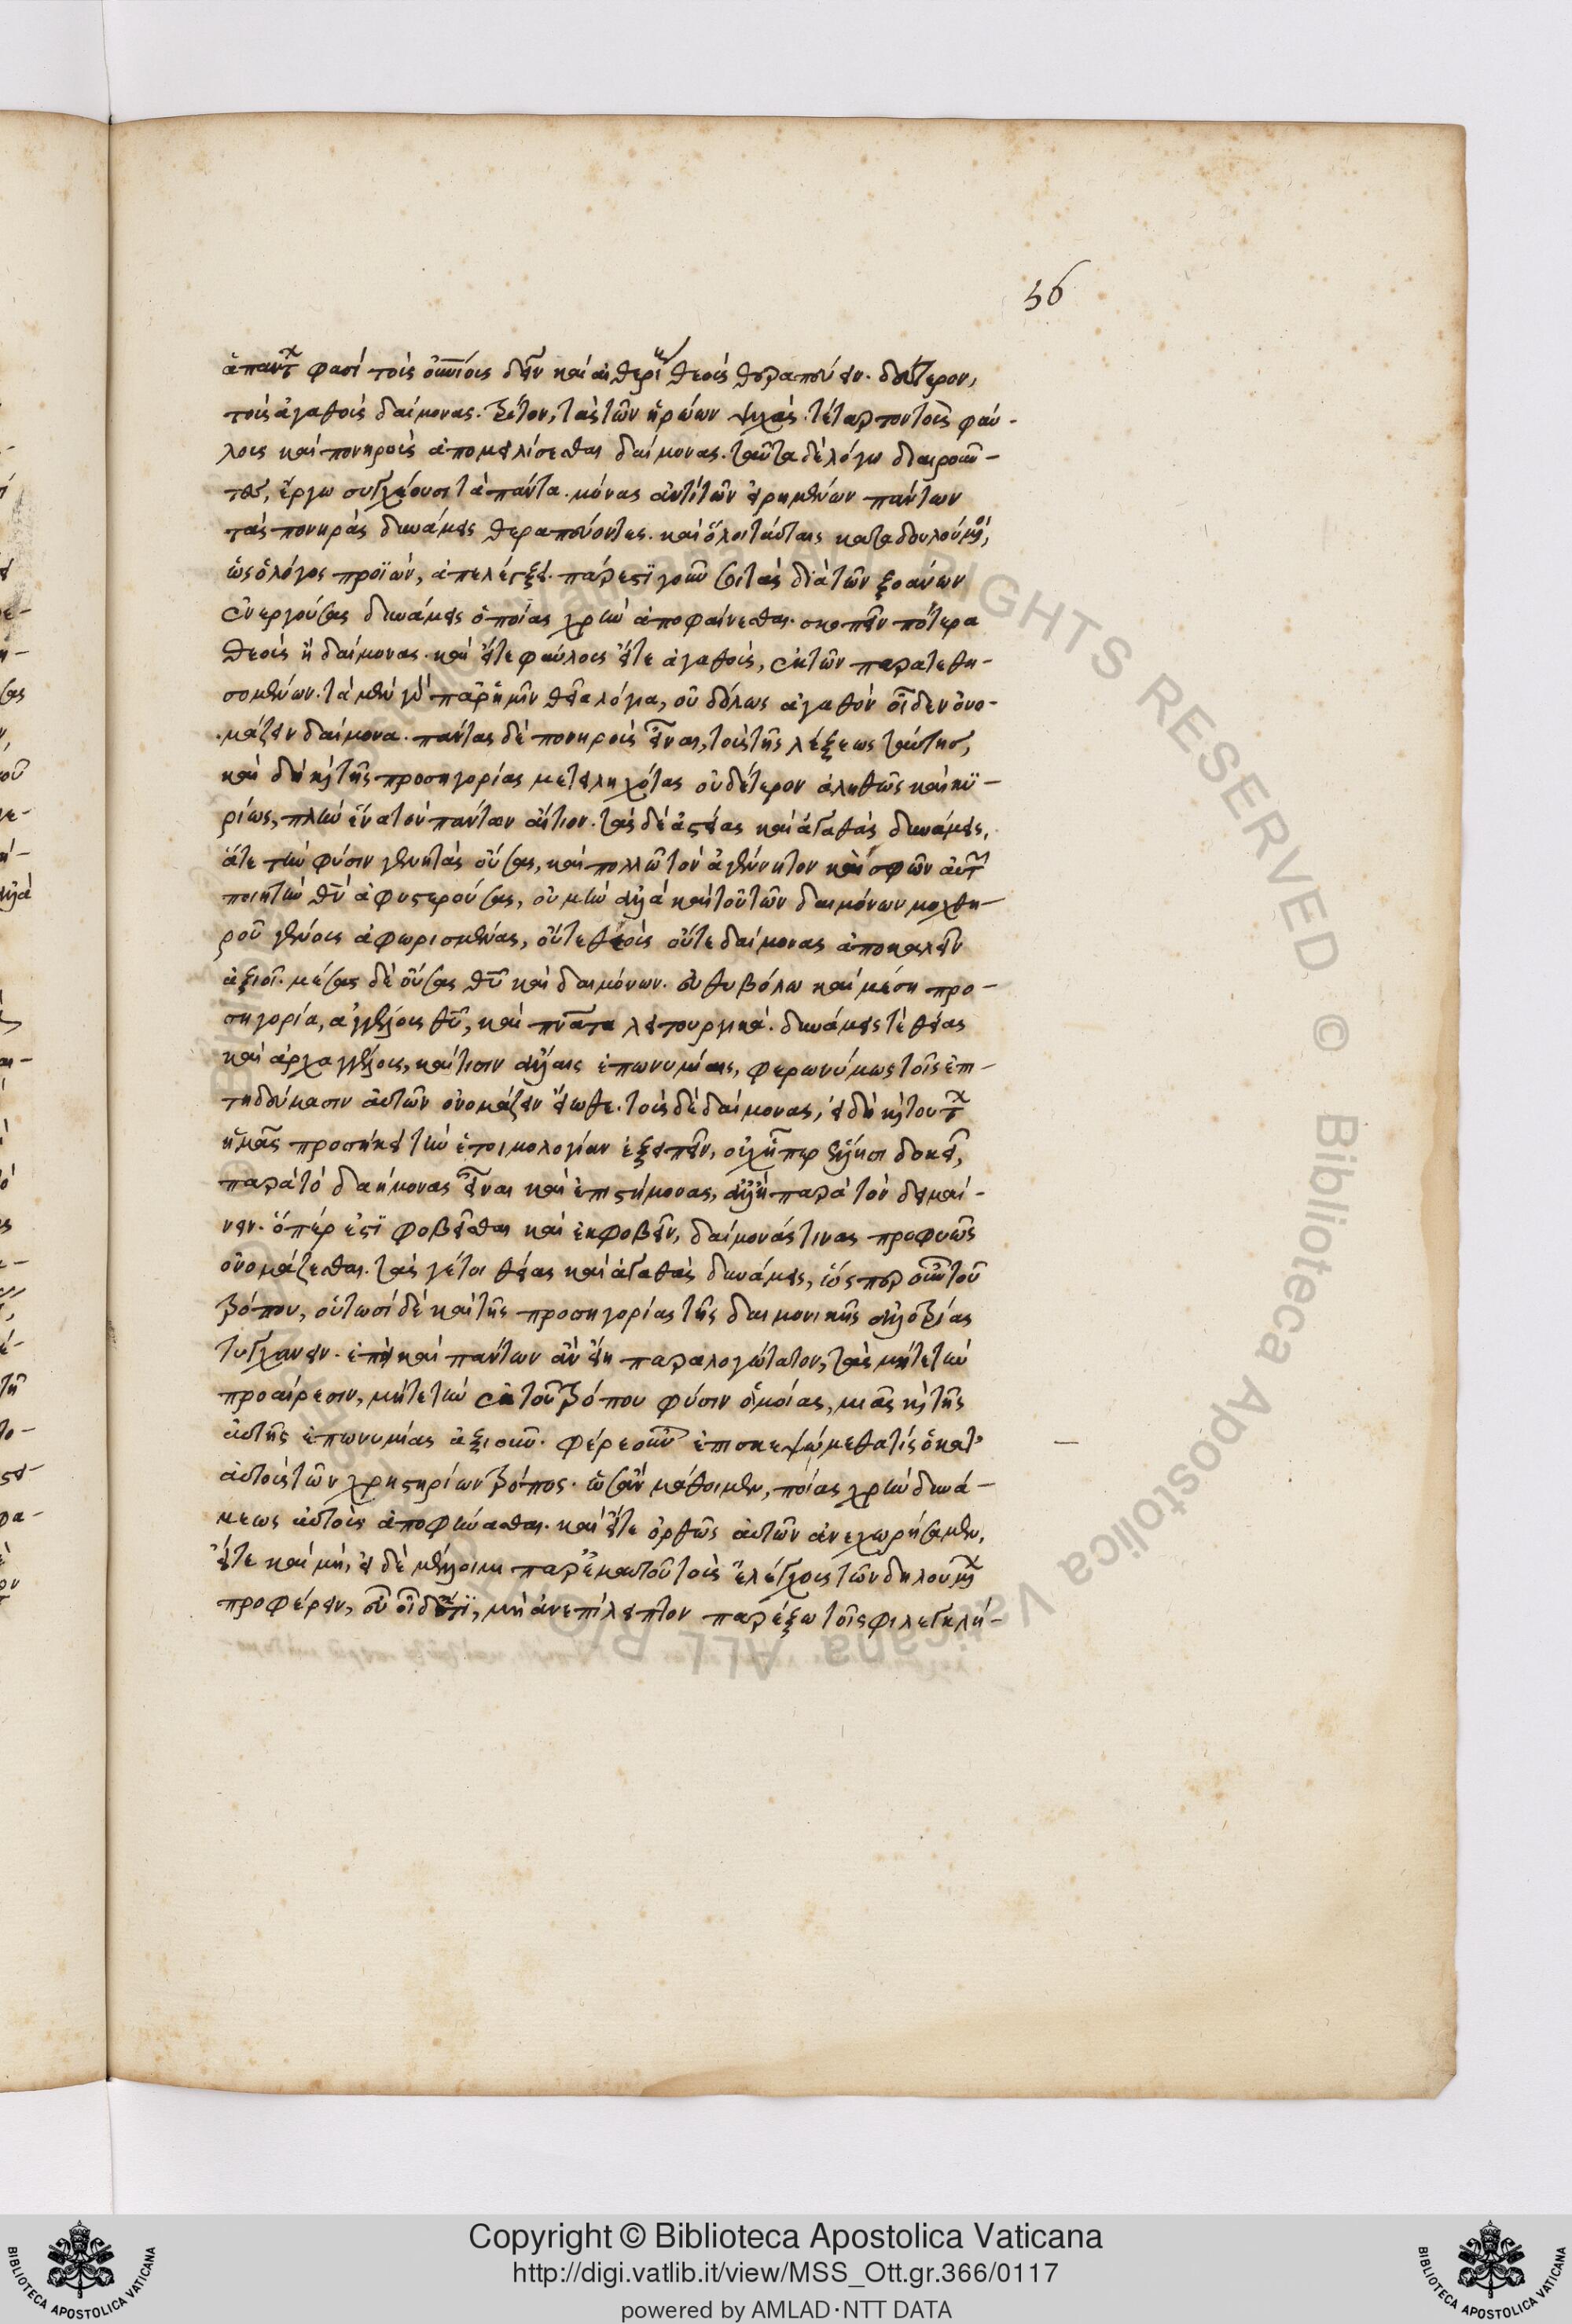 56
ἅπαντας φασὶ τοὺς οὐρανίους δεῖν καὶ αἰθερίους θεοὺς θεραπεύειν. δεύτερον,
τοὺς ἀγαθοὺς δαίμονας. τρίτον, τὰς τῶν ἡρώων ψυχάς. τέταρτον τοὺς φαύ-
λους καὶ πονηροὺς ἀπομειλίσεσθαι δαίμονας. ταῦτα δὲ λόγω διαιροῦν-
τες, ἔργω συγχέουσι τὰ πάντα. μόνας ἀντὶ τῶν εἰρημένων πάντων
τὰς πονηρὰς δυνάμεις θεραπεύοντες. καὶ ὅλοι ταύταις καταδουλούμενοι,
ὡς ὁ λόγος προϊὼν, ἀπελέγξει. πάρεστι γοῦν σοι τὰς διὰ τῶν ξοάνων
ἐνεργούσας δυνάμεις ὁποίας χρὴν ἀποφαίνεσθαι. σκοπεῖν πότερα
θεοὺς ἢ δαίμονας. καὶ εἴτε φαύλους εἴτε ἀγαθοὺς, ἐκ τῶν παρατεθη-
σομένων. τὰ μὲν γὰρ παρ' ἡμῖν θεῖα λόγια, οὐδόλως ἀγαθὸν οἶδεν ὀνο-
μάζειν δαίμονα. πάντας δὲ πονηροὺς εἶναι, τοὺς τῆς λέξεως ταύτης,
καὶ δὴ καὶ τῆς προσηγορίας μετειληχότας οὐδέτερον ἀληθῶς καὶ κυ-
ρίως, πλὴν ἕνα τὸν πάντων αἴτιον. τὰς δὲ ἀστείας καὶ ἀγαθὰς δυνάμεις,
ἅτε τὴν φύσιν γενητὰς οὔσας, καὶ πολλῶ τὸν ἀγένητον καὶ σφῶν αὐτῶν
ποιητὴν θεὸν ἀφυστερούσας, οὐ μὴν ἀλλὰ καὶ τοῦ τῶν δαιμόνων μοχθη-
ροῦ γένους ἀφωρισμένας, οὔτε θεοὺς οὔτε δαίμονας ἀποκαλεῖν
ἀξιοῖ. μέσας δὲ οὔσας θεοῦ καὶ δαιμόνων. εὐθυβόλω καὶ μέση προ-
σηγορία, ἀγγέλους θεοῦ, καὶ πνεύματα λειτουργικά. δυνάμεις τὲ θείας
καὶ ἀρχαγγέλους, καὶ τισὶν ἄλλαις ἐπωνυμίαις, φερωνύμως τοῖς ἐπι-
τηδεύμασιν αὐτῶν ὀνομάζειν εἴωθε. τοὺς δὲ δαίμονας, εἰ δὴ καὶ τούτων
ἡμᾶς προσήκει τὴν ἐτοιμολογίαν ἐξειπεῖν, οὐχ ἧπερ ἕλλησι δοκεῖ,
παρὰ τὸ δαήμονας εἶναι καὶ ἐπιστήμονας, ἀλλ' ἢ παρὰ τὸν δειμαί-
νειν. ὅπέρ ἐστι φοβεῖσθαι καὶ ἐκφοβεῖν, δαίμονάς τινας προφυῶς
ὀνομάζεσθαι. τὰς γέτοι θείας καὶ ἀγαθὰς δυνάμεις, ὥσπερ οὖν τοῦ
τρόπου, οὑτωσὶ δὲ καὶ τῆς προσηγορίας τῆς δαιμονικῆς ἀλλοτρίας
τυγχάνειν. ἐπεὶ καὶ πάντων ἂν εἴη παραλογώτατον, τὰς μήτε τὴν
προαίρεσιν, μήτε τὴν ἐκ τοῦ τρόπου φύσιν ὁμοίας, μιᾶς καὶ τῆς
αὐτῆς ἐπωνυμίας ἀξιοῦν. φέρε οὖν ἐπισκεψώμεθα τίς ὁ κατ'
αὐτοὺς τῶν χρηστηρίων τρόπος. ὡς ἂν μάθοιμεν, ποίας χρὴν δυνά-
μεως αὐτοὺς ἀποφήνασθαι. καὶ εἴτε ὀρθῶς αὐτῶν ἀνεχωρήσαμεν,
εἴτε καὶ μή, εἰ δὲ μέλλοιμι παρ' ἐμαυτοῦ τοὺς ἐλέγχους τῶν δηλουμένων
προφέρειν, εὖ οἶδ' ὅτι, μὴ ἀνεπίληπτον παρέξω τοῖς φιλεγκλή-